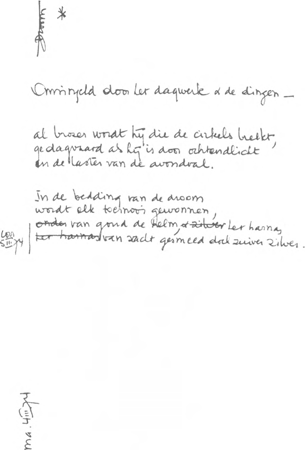 Droom
*
Omringeld door het dagwerk & de dingen —
al brozer wordt hij die de cirkels trekt,
gedagvaard als hij is door ochtendlicht
en de laster van de avondval.
In de bedding van de droom
wordt elk toernooi gewonnen,
onder van goud de helm, & zilver het harnas,
het harnas van zacht gesmeed doch zuiver zilver.
5 III 74
ma. 4 III 74